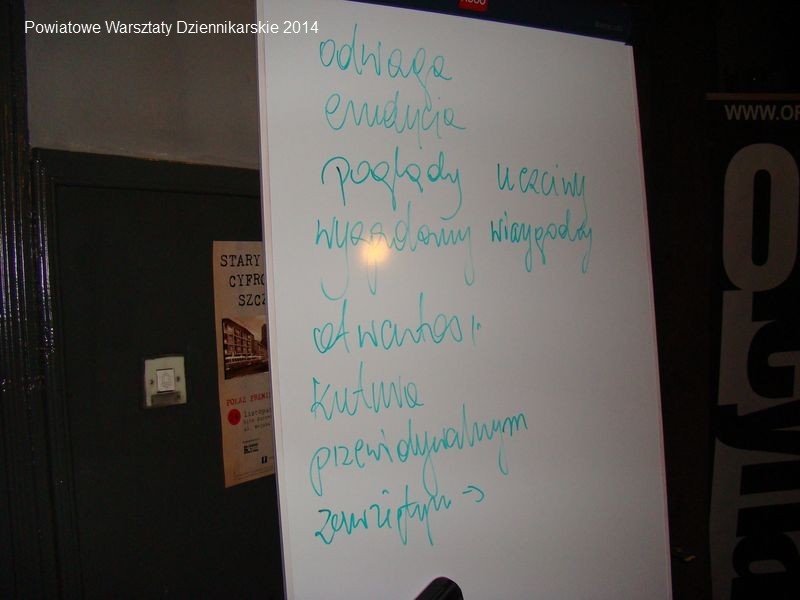 Powiatowe Warsztaty Dziennikarskie 2014
odwaga
erudycja
poglądy uczciwy
wygadany wiarygodny
otwartość
kultura
przewidywalnym
zawziętym →
STARY
CYFRO
SZCZ
POKAZ PREMI
listopad
WWW.OF